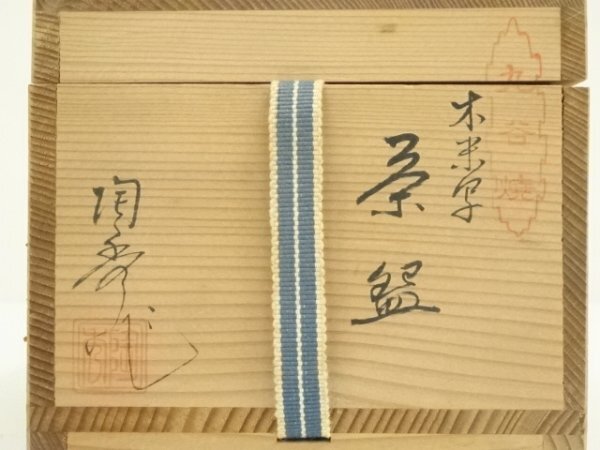 九谷焼
木米写
茶盌
陶秀